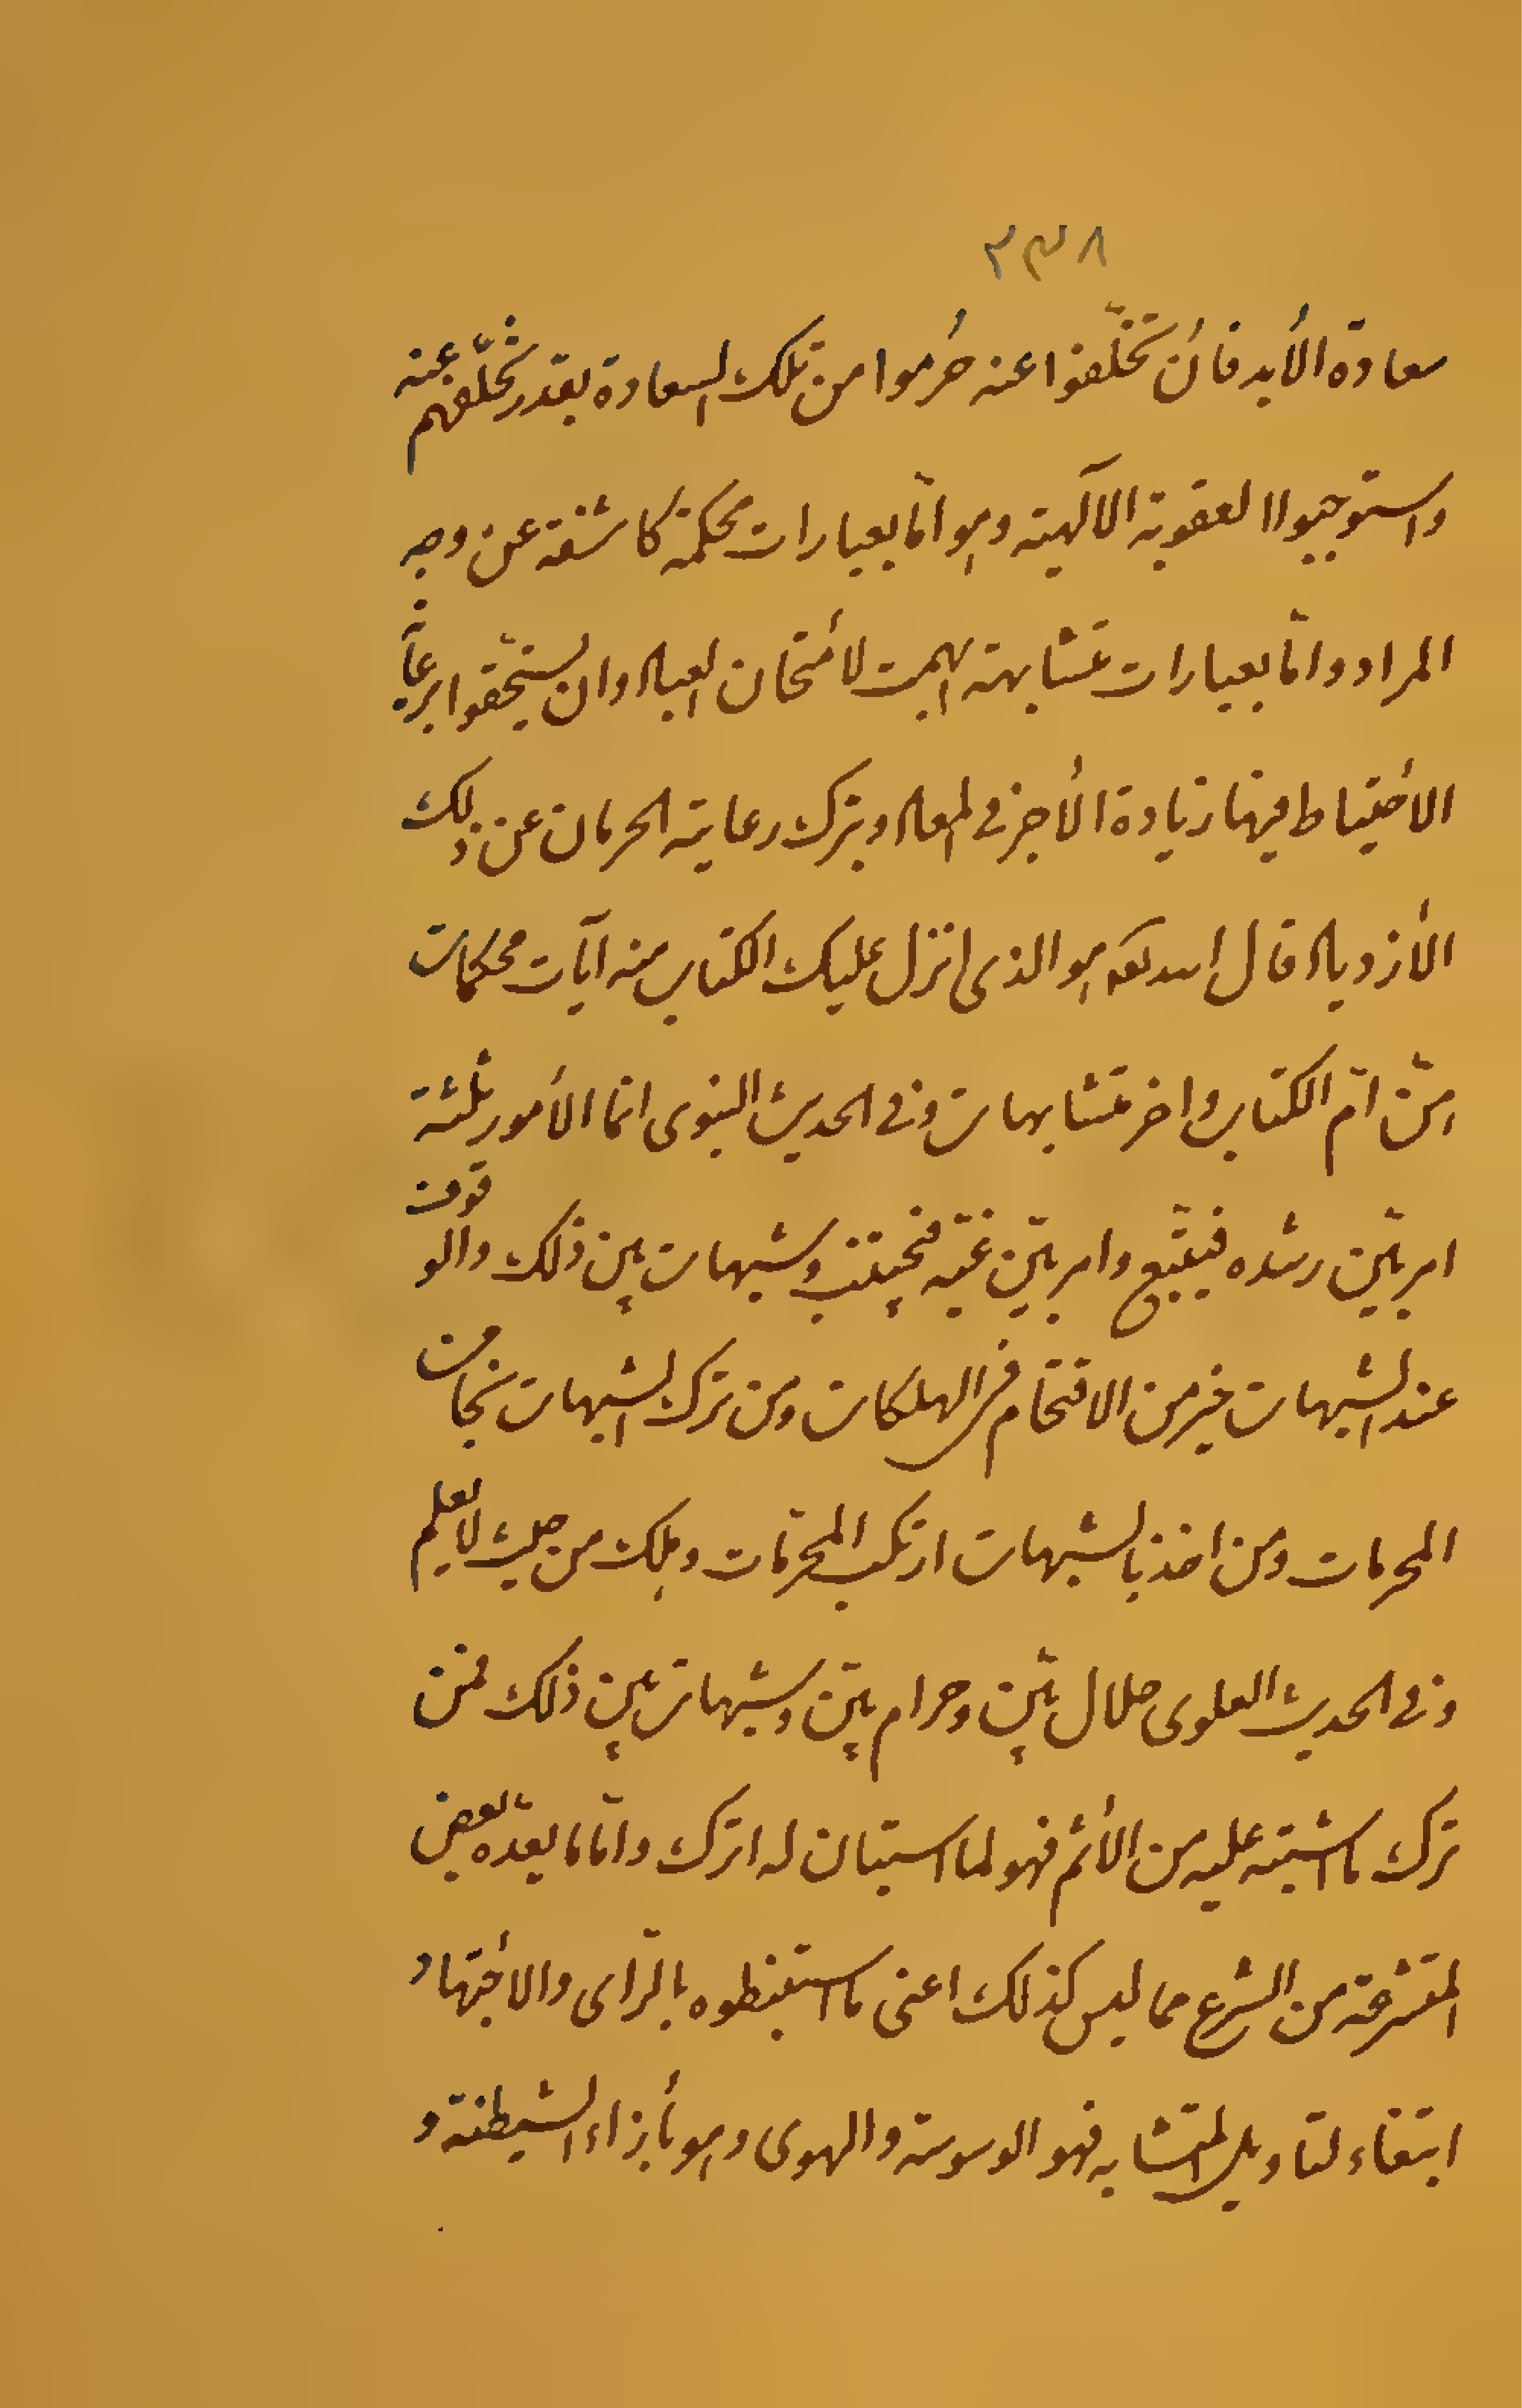 ٣٣٨
سعادة الأبد فأن تخلّفوا عنه حُرموا من تلك السعادة بقدر تخلّفهم عنه
واستوجبوا العقوبة الآلهية وهو امّا بعبارات محكمة كاشفة عن وجه
المراد وامّا بعبارات متشابهة ابهمت لأمتحان العباد وان يستحّقوا برعاية
الأحتياط فيها زيادة الأجر في المعاد وبترك رعايته الحرمان عن ذلك
الأزدياد قال الله تعه هو الذى انزل عليك الكتاب منه آيات محكمات
هنّ امّ الكتاب واخر متشابهات وفي الحديث النبوى انما الأمور ثلثة
امر بيّن رشده فيتّبع وامر بيّن غيّه فيجتنب وشبهات بين ذلك والوقوف
عند الشبهات خير من الاقتحام في الهلكات ومن ترك الشبهات نجا من
المحرمات ومن اخذ بالشبهات ارتكب المحرّمات وهلك من حيث لا يعلم
وفي الحديث العلوى حلال بيّن وحرام بيّن وشبهات بين ذلك فمن
ترك ما اشتبه عليه من الأثم فهو لما استبان له اترك وامّا ما يعدّه بعض
المتشرعة من الشرع مما ليس كذلك اعنى ما استنبطوه بالرّاى والأجتهاد
ابتغاء لتاويل المتشابه فهو الوسوسة والهوى وهو بأزاء الشيطنة و